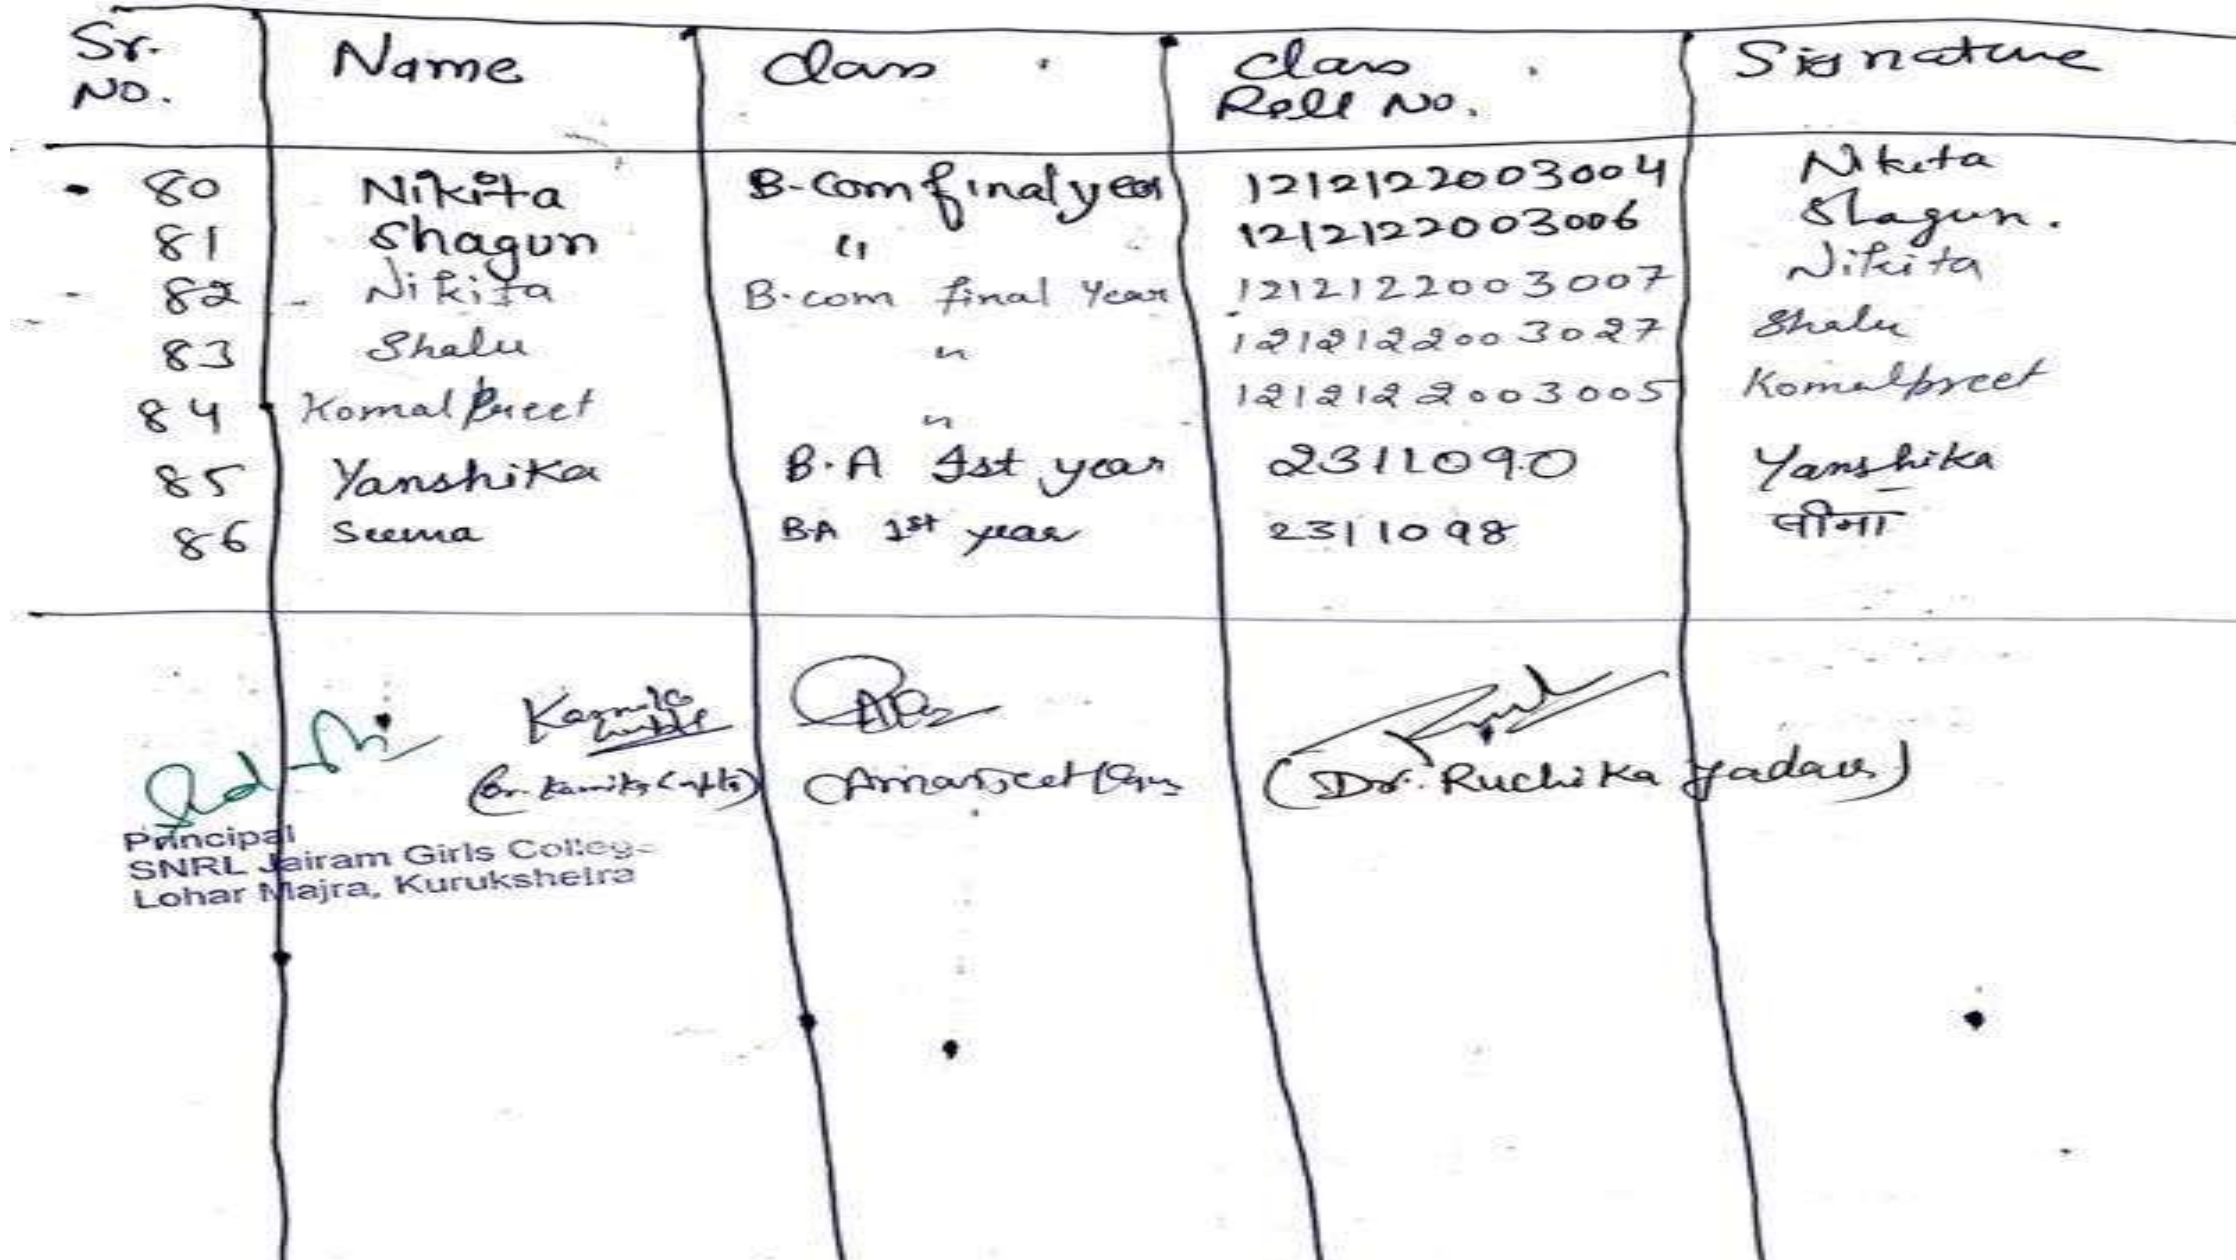 Sr. No. Name Class Class Roll No. Signature
80 Nikita B-Com final year 1212122003004 Nikita
81 Shagun " 1212122003006 Shagun.
82 Nikita B.com final Year 1212122003007 Nikita
83 Shalu " 1212122003027 Shalu
84 Komalpreet " 1212122003005 Komalpreet
85 Yanshika B.A 1st year 2311090 Yanshika
86 Seema BA 1st year 2311098 सीमा
(Dr. Ruchika Yadav)
Principal
SNRL Jairam Girls College
Lohar Majra, Kurukshetra